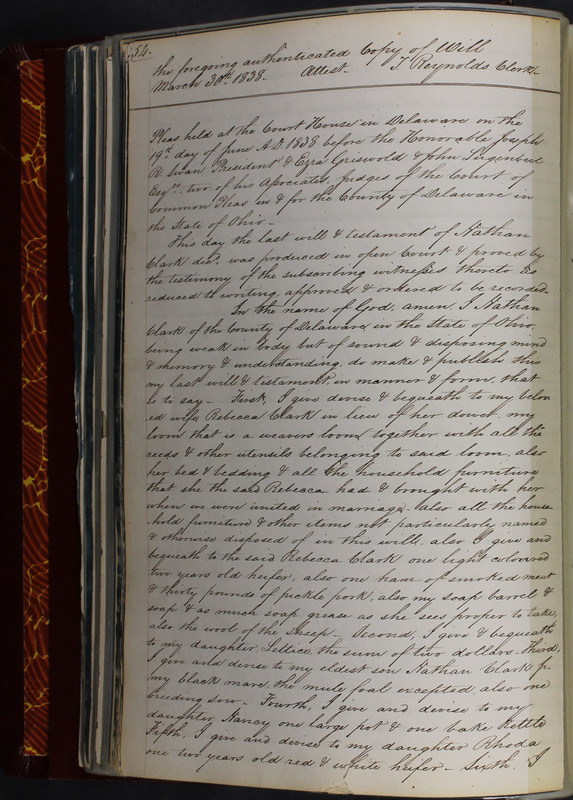 54.
the foregoing authenticated Copy of Will
March 30th 1838. Attest. T Reynolds Clerk.
Pleas held at the Court House in Delaware on the
19th day of June A.D. 1838 before the Honorable Joseph
R. Swan President & Ezra Griswold & John Lugenbeel
Esqrs. two of his Associates, judges of the Court of
Common Pleas in & for the County of Delaware in
the State of Ohio.
This day the last will & testament of Nathan
Clark decd. was produced in open Court & proved by
the testimony of the subscribing witnesses thereto as
reduced to writing, approved & ordered to be recorded.
In the name of God, amen. I Nathan
Clark of the County of Delaware in the State of Ohio,
being weak in body but of sound & disposing mind
& memory & understanding, do make & publish this
my last will & testament, in manner & form, that
is to say - First, I give devise & bequeath to my belov
ed wife Rebecca Clark in lieu of her dower, my
loom that is a weavers loom together with all the
reeds & other utensils belonging to said loom, also
her bed & bedding & all the household furniture
that she the said Rebecca had & brought with her
when we were united in marriage. also all the house
-hold furniture & other items not particularly named
& otherwise disposed of in this will, also I give and
bequeath to the said Rebecca Clark one light coloured
two years old heifer, also one ham of smoked meat
& thirty pounds of pickle pork, also my soap barrel &
soap & as much soap grease as she sees proper to take,
also the wool of the sheep. Second, I give & bequeath
to my daughter, Lettice, the sum of two dollars. Third,
I give and devise to my eldest son Nathan Clark Jr.
my black mare, the mule foal excepted, also one
breeding sow - Fourth, I give and devise to my
daughter Nancy one large pot & one bake kettle
Fifth, I give and devise to my daughter Rhoda
one two years old red & white heifer - Sixth. I